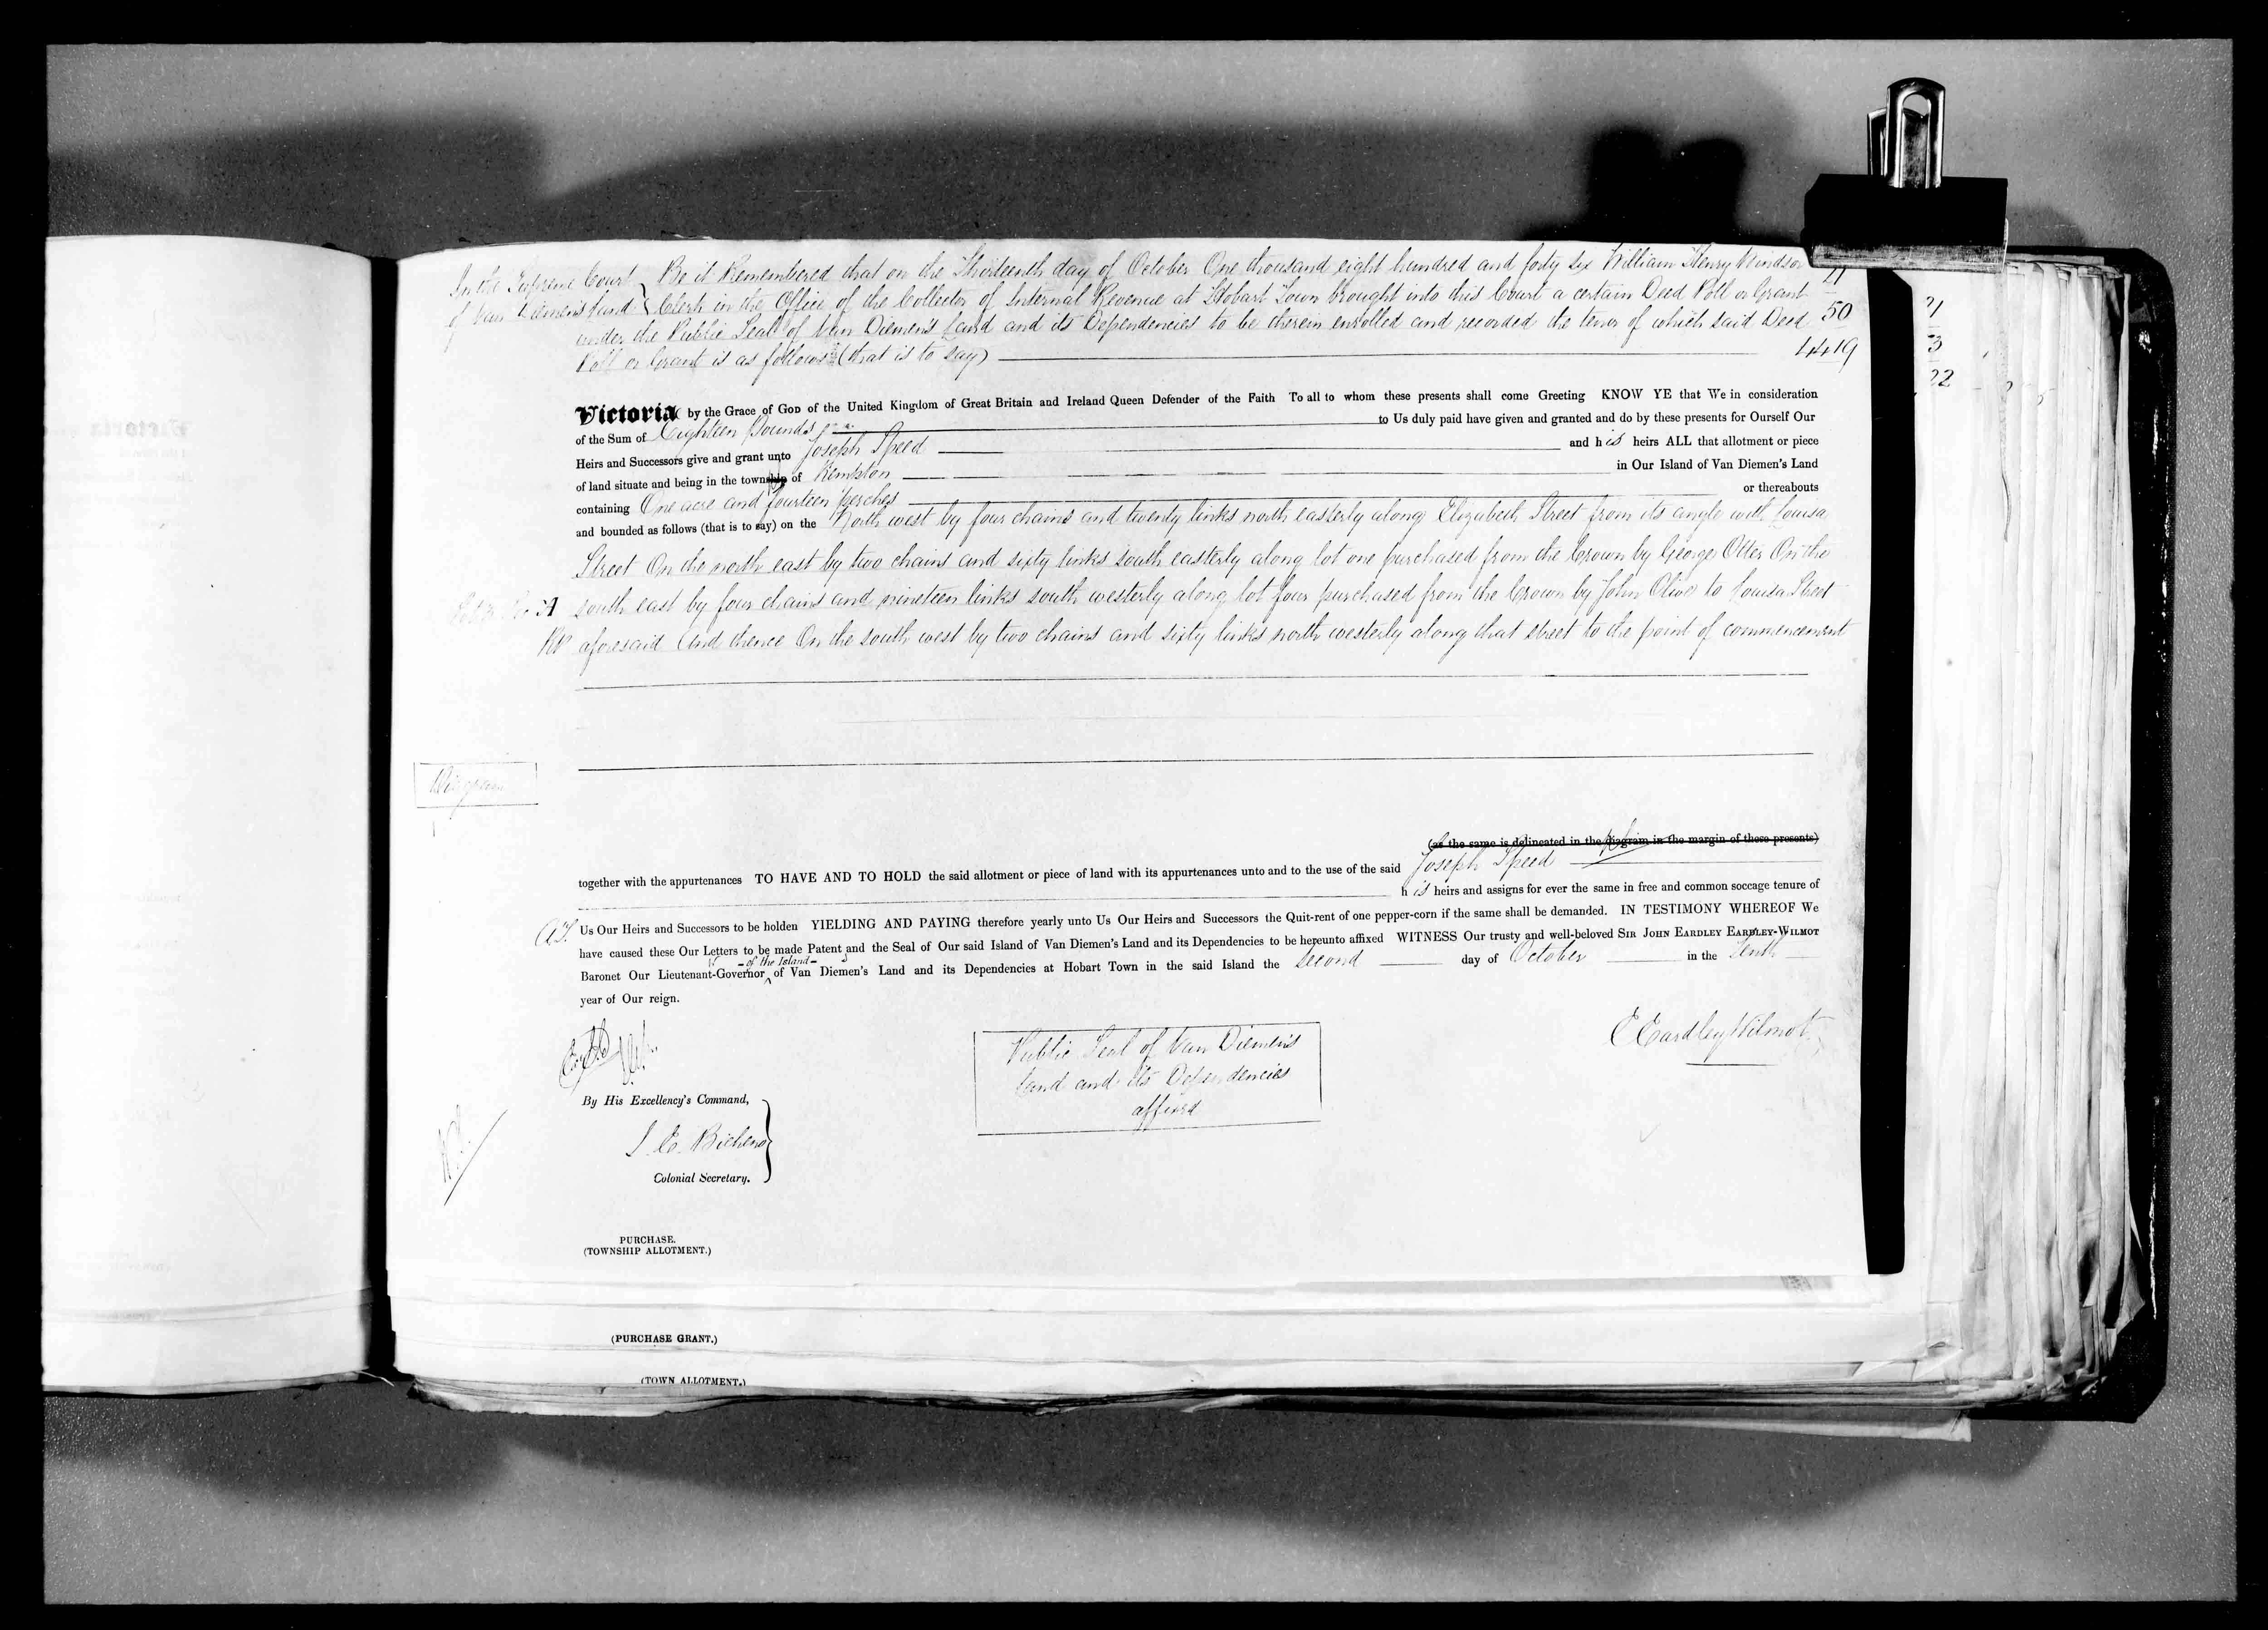 In the Supreme Court of Van Diemen's Land
Be it Remembered that on the Thirteenth day of October One thousand eight hundred and forty six William Henry Windsor
Clerk in the Office of the Collector of Internal Revenue at Hobart Town brought into this Court a certain Deed Poll or Grant
under the Public Seal of Van Diemen's Land and its Dependencies to be therein enrolled and recorded the tenor of which said Deed
Poll or Grant is as follows (that is to say)
21
50
1419
Victoria by the Grace of God of the United Kingdom of Great Britain and Ireland Queen Defender of the Faith To all to whom these presents shall come Greeting KNOW YE that We in consideration
of the Sum of Eighteen Pounds to Us duly paid have given and granted and do by these presents for Ourself Our
Heirs and Successors give and grant unto Joseph Speed and his heirs ALL that allotment or piece
of land situate and being in the township of Kempton in Our Island of Van Diemen's Land
containing One acre and fourteen perches or thereabouts
and bounded as follows (that is to say) on the North west by four chains and twenty links north easterly along Elizabeth Street from its angle with Louisa
Street On the north east by two chains and sixty links south easterly along lot one purchased from the Crown by George Otter On the
south east by four chains and nineteen links south westerly along lot four purchased from the Crown by John Olive to Louisa Street
aforesaid And thence On the south west by two chains and sixty links north westerly along that street to the point of commencement
Diagram
(as the same is delineated in the diagram in the margin of these presents)
together with the appurtenances TO HAVE AND TO HOLD the said allotment or piece of land with its appurtenances unto and to the use of the said Joseph Speed
his heirs and assigns for ever the same in free and common soccage tenure of
Us Our Heirs and Successors to be holden YIELDING AND PAYING therefore yearly unto Us Our Heirs and Successors the Quit-rent of one pepper-corn if the same shall be demanded. IN TESTIMONY WHEREOF We
have caused these Our Letters to be made Patent and the Seal of Our said Island of Van Diemen's Land and its Dependencies to be hereunto affixed WITNESS Our trusty and well-beloved SIR JOHN EARDLEY EARDLEY-WILMOT
-of the Island-
Baronet Our Lieutenant-Governor of Van Diemen's Land and its Dependencies at Hobart Town in the said Island the second day of October in the Tenth
year of Our reign.
E Eardley Wilmot
Public Seal of Van Diemen's
Land and its Dependencies
affixed
By His Excellency's Command,
J. E. Bicheno
Colonial Secretary.
PURCHASE.
(TOWNSHIP ALLOTMENT.)
(PURCHASE GRANT.)
(TOWN ALLOTMENT.)